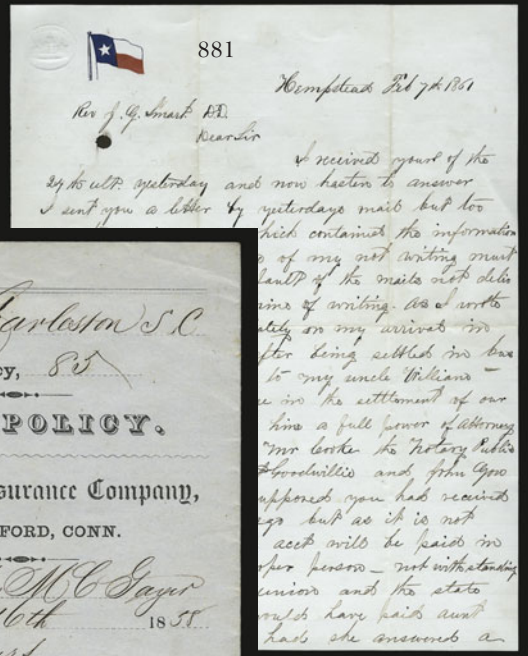 881
Hempstead Feb 7th 1861
Rev J. G. Smart DD.
Dear Sir
I received yours of the
27th ult. yesterday and now hasten to answer
I sent you a letter by yesterdays mail but too
hich contained the information
of my not writing must
fault of the mails not deliv
time of writing. As I wrote
ately on my arrival in
fter being settled in bus
to my uncle William
in the settlement of our
him a full power of Attorney
Mr Cooke the Notary Public
Goodwillie and John Gow
upposed you had received
ago but as it is not
acct will be paid in
oper person – not withstanding
union and the state
would have paid aunt
had she answered a
arleston S C
cy, 85
POLICY.
surance Company,
FORD, CONN.
M C Gayer
16th 1858